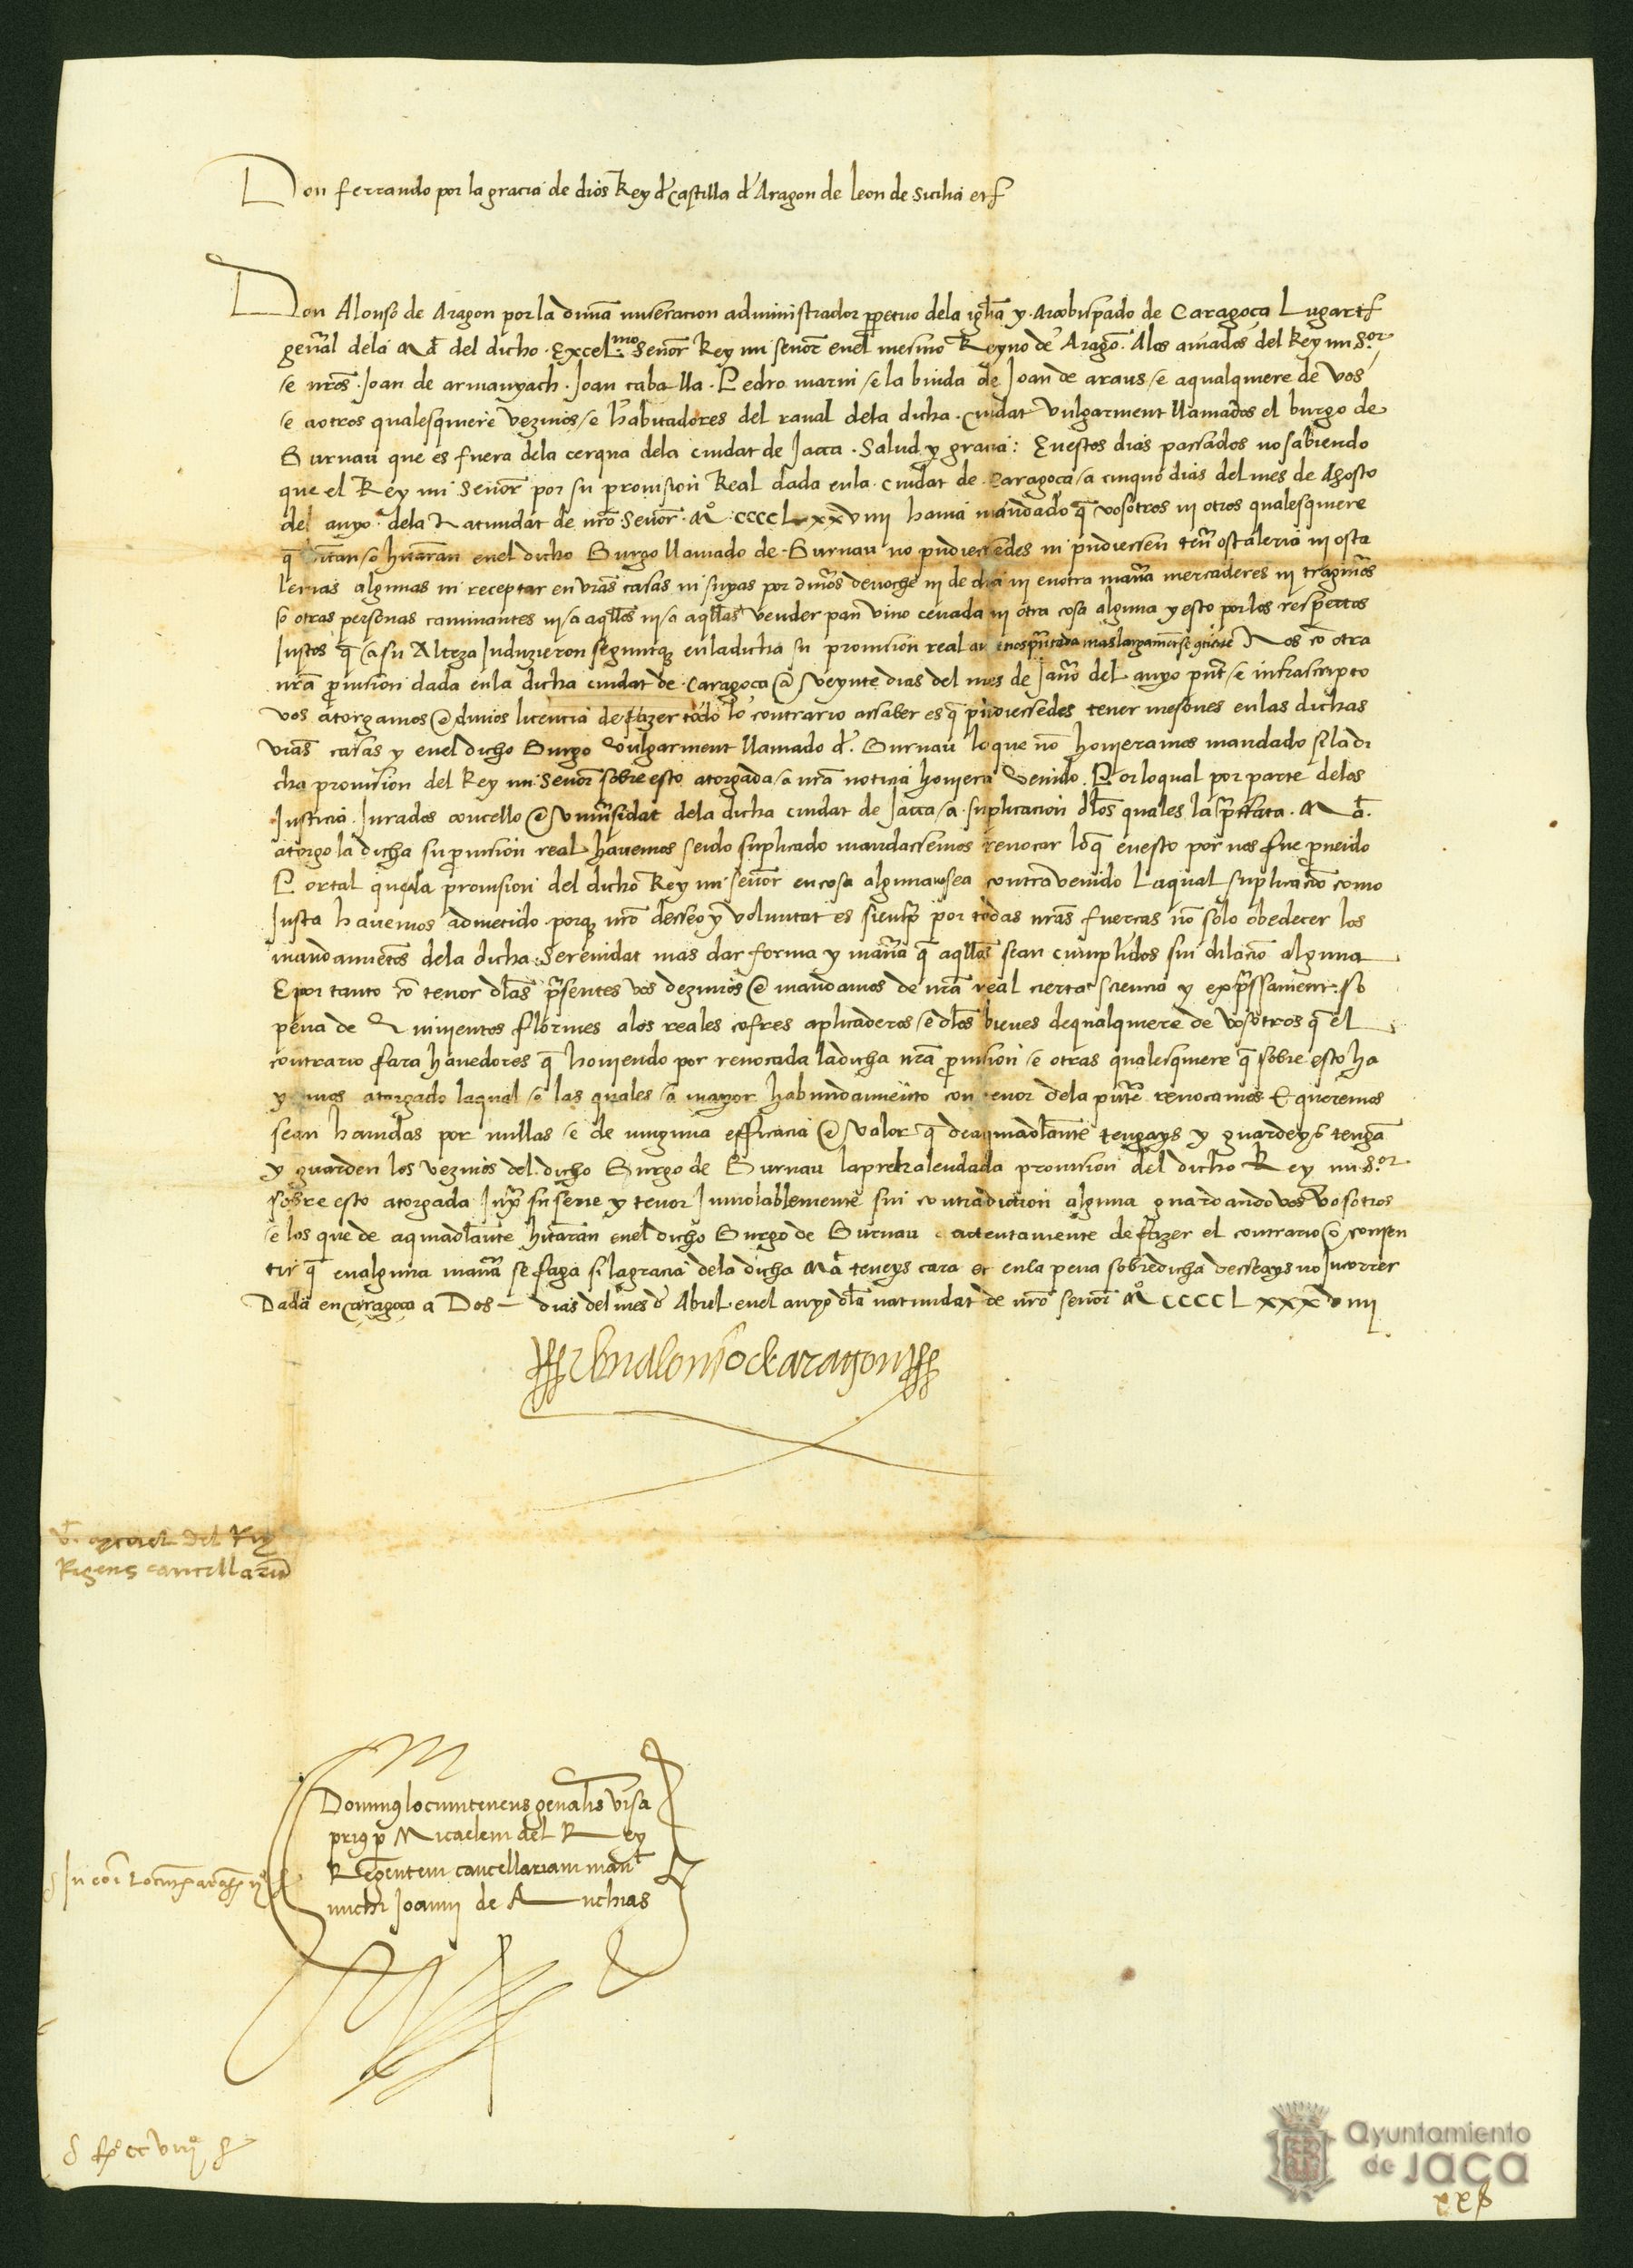 Don ferrando por la gracia de dios Rey d'Castilla d'Aragon de leon de Sicilia etc
Don Alonso de Aragon por la diuīa miseracion administrador ꝑpetuo dela iglīa y Arcobispado de Caragoça Lugartᵗ
gen̄al dela Mᵗ del dicho Excelᵐᵒ Senor Rey mi senor enel mesmo Reyno de Aragō. Alos amados del Rey mi Sᵒʳ
e nr̄os Joan de armanyach Joan caballa Pedro marin e la biuda de Joan de araus e aqualquiere de vos
e aotros qualesquiere vezinos e habitadores del raual dela dicha ciudat vulgarment llamados el burgo de
Burnau que es fuera dela cerqua dela ciudat de Jacca. Salud y gracia: Enestos dias passados no sabiendo
que el Rey mi Senor por su prouision Real dada enla ciudat de Caragoça a cinquo dias del mes de Agosto
del anyo dela Natiuidat de nr̄o Senor Mº CCCCLxxxviiii hauia mandado q̄ vosotros ni otros qualesquiere
q̄ e huāran enel dicho Burgo llamado de Burnau no pudiessedes ni pudiessen ten̄ ostaleria ni osta
lerias algunas ni receptar en vr̄as casas ni suyas por din̄os denoche ni de dia ni enotra man̄a mercaderes ni tragin̄os
o otras personas caminantes ni a aqll̄os ni a aqll̄as vender pan vino ceuada ni otra cosa alguna y esto por los respectos
Justos q̄ a su Alteza Induzieron segunt q̄ enladicha su prouision real a nos p̄ntada mas largament se 9tiene Nos cō otra
nr̄a ꝓuision dada enla dicha ciudat de Caragoça a veynte dias del mes de Jan̄o del anyo pn̄t e infrascripto
vos atorgamos e dimos licencia de fazer todo lo contrario assaber es q̄ pudiessedes tener mesones enlas dichas
vr̄as casas y enel dicho Burgo vulgarment llamado d' Burnau lo que no houieramos mandado si la di
cha prouision del Rey mi Senor sobre esto atorgada a nr̄a noticia houiera venido. Por loqual por parte delos
Justicia Jurados concello e vniūsidat dela dicha ciudat de Jacca a suplicacion dl̄os quales la p̄ffata Mᵗ.
atorgo la dicha su ꝓuision real hauemos seido suplicado mandassemos reuocar lo q̄ enesto por nos fue ꝓueido
Portal que la prouision del dicho Rey mi senor en cosa alguna no sea contrauenido Laqual suplicaciō como
Justa hauemos admetido porq̄ nr̄o desseo y voluntat es siemp̄ por todas nr̄as fuercas no solo obedecer los
mandamiētos dela dicha Serenidat mas dar forma y man̄a q̄ aqll̄os sean cumplidos sin dilaciō alguna
E por tanto cō tenor dl̄as p̄sentes vos dezimos e mandamos de nr̄a real cierta sciencia y exp̄ssament so
pena de Quinientos florines alos reales cofres aplicaderos e dl̄os bienes dequalquiere de vosotros q̄ el
contrario fara hauedores q̄ houiendo por reuocada ladicha nr̄a ꝓuision e otras qualesquiere q̄ sobre esto ha
yamos atorgado laqual e las quales a mayor habundamiento con tenor dela pn̄te reuocamos E queremos
sean hauidas por nullas e de ninguna efficacia e valor q̄ deaquiadelante tengays y guardeys e tengā
y guarden los vezinos del dicho Burgo de Burnau la prechalendada prouision del dicho Rey mi Sᵒʳ
sobre esto atorgada Juxᵃ su serie y tenor Inuiolablemente sin contradiction alguna guardandovos vosotros
e los que de aquiadelante hitaran enel dicho Burgo de Burnau attentamente de fazer el contrario o consen
tir q̄ en alguna man̄a se faga si la gracia dela dicha Mᵗ teneys cara et enla pena sobredicha desseays no Incorrer
Dada en Caragoça a Dos — dias del mes d' Abril enel anyo dl̄a natiuidat de nr̄o senor Mº CCCCLxxxviiii
don alonso de aragon
Vᵗ. Micael del Rey
Regens cancellariā
Domin9 locumtenens gen̄alis visa
pri9 ꝑ Micaelem del Rey
Regentem cancellariam mandᵗ
michi Joanni de Anchias
In
fº ccviiiº
Ayuntamiento
de Jaca